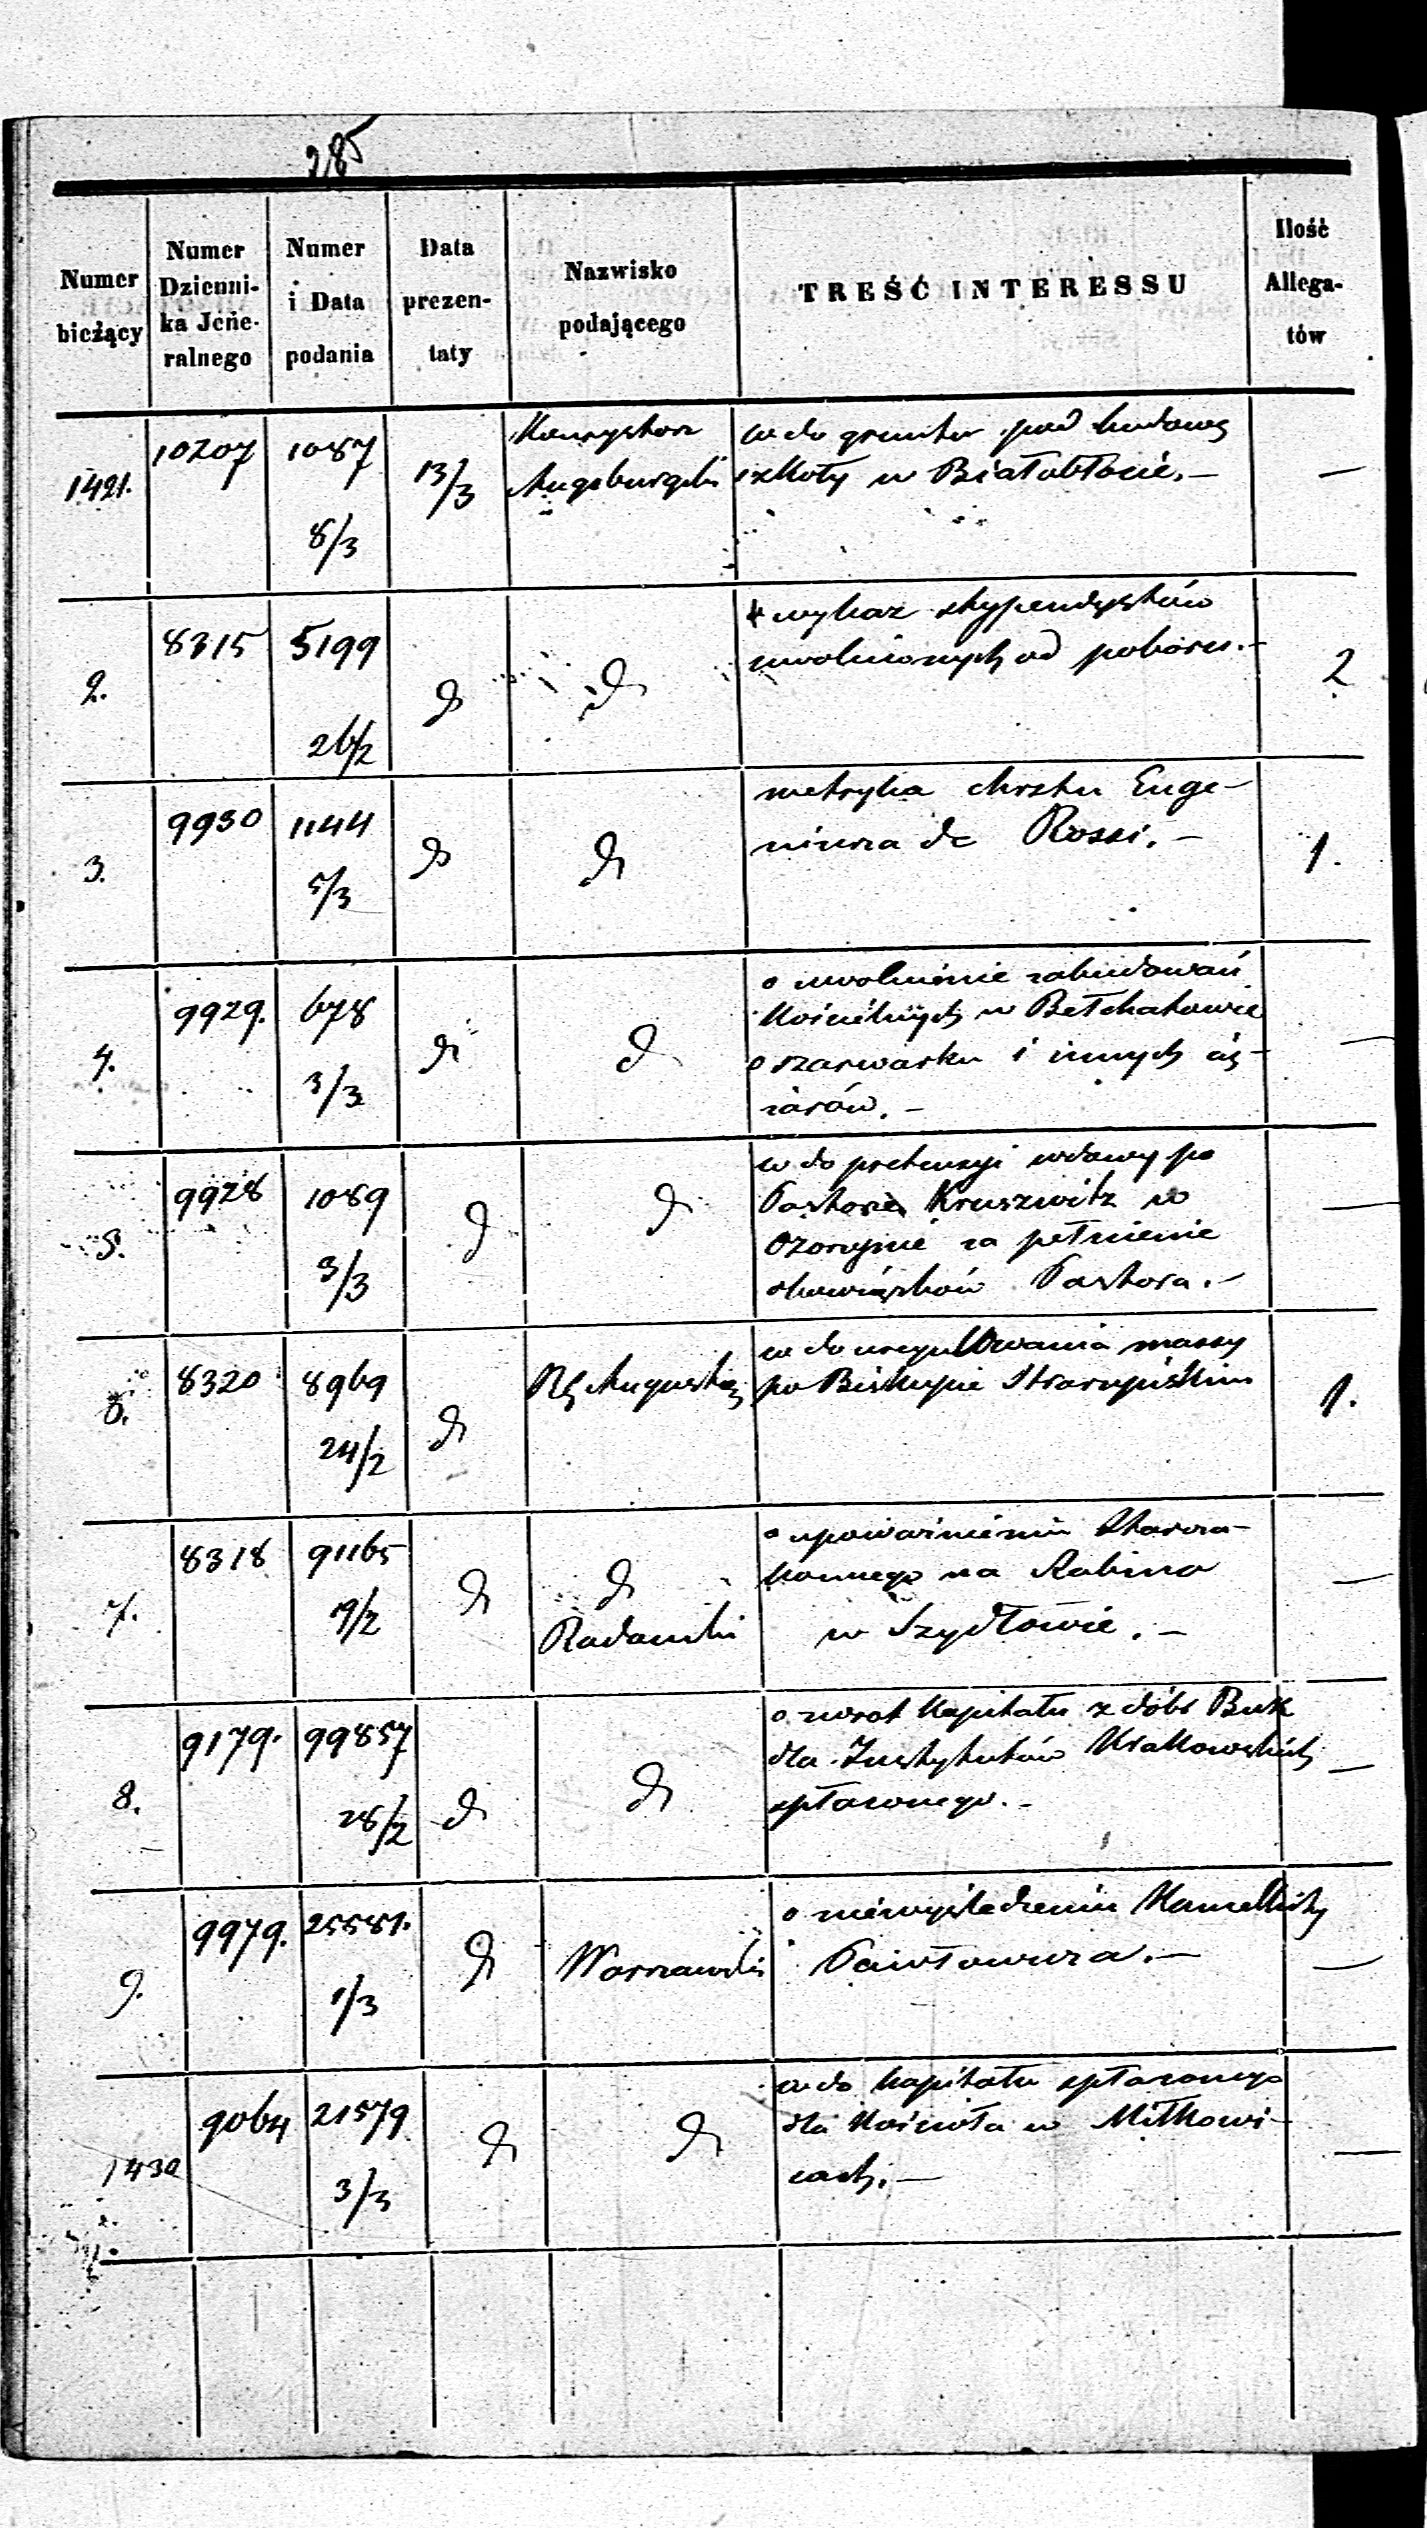 285
Numer bieżący
Numer Dzienni- ka Jene- ralnego
Numer i Data podania
Data prezen- taty
Nazwisko podającego
TREŚĆ INTERESSU
Ilość Allega- tów
1421.
10207
1087
8/3
13/3
Konsystorz
Augsburgski
w do gruntu pod budowę
szkoły w Białobłocie. —
—
2.
8315
5199
26/2
d
d
wykaz stypendystów
uwolnionych od poboru. —
2
3.
9930
1144
5/3
d
d
metryka chrztu Euge-
niusza de Rossi. —
1.
4.
9929.
678
3/3
d
d
o uwolnienie zabudowań
kościelnych w Bełchatowie
o szarwarku i innych cię-
żarów. —
—
5.
9928
1089
3/3
d
d
w do pretensyi wdowy po
Pastorze Kruszwitz w
Ozorynie za pełnienie
obowiązków Pastora. —
—
6.
8320
8969
24/2
d
Rg Augustow
w do uregulowania massy
po Biskupie Straszyńskim
1.
7.
8318
91165
19/2
d
d
Radomski
o upoważnieniu Staroza-
konnego na Rabina
w Szydłowie. —
—
8.
9179.
99857
28/2
d
d
o zwrot kapitału z dóbr Buk
dla Instytutów Krakowskich
spłaconego. —
—
9.
9979.
25581.
1/3
d
Warszawski
o niewyśledzeniu
Pawłowicza. —
—
1430
9064
21579
3/3
d
d
w do kapitału spłaconego
dla kościoła w Miłkowi-
cach. —
—